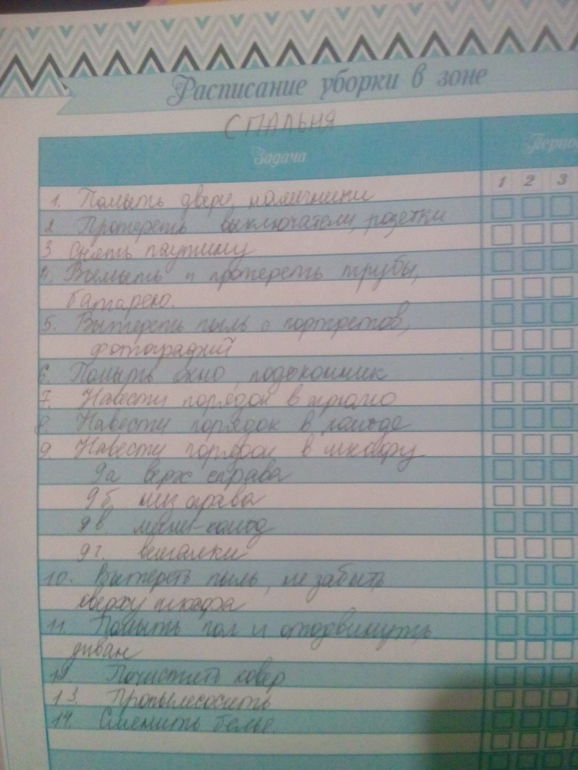 Расписание уборки в зоне
СПАЛЬНЯ
Задача
Перио
1 2 3
1. Помыть двери, наличники
2 Протереть выключатели, розетки
3 Снять паутину
4. Вымыть и протереть трубы,
батарею.
5. Вытереть пыль с портретов,
фотографий
6. Помыть окно, подоконник
7. Навести порядок в трюмо
8. Навести порядок в комоде
9. Навести порядок в шкафу
9а верх справа
9б низ права
9в мини-комод
9г. вешалки
10. Вытереть пыль, не забыть
сверху шкафа
11. Помыть пол и отодвинуть
диван
12. Почистить ковер
13. Пропылесосить
14. Сменить белье